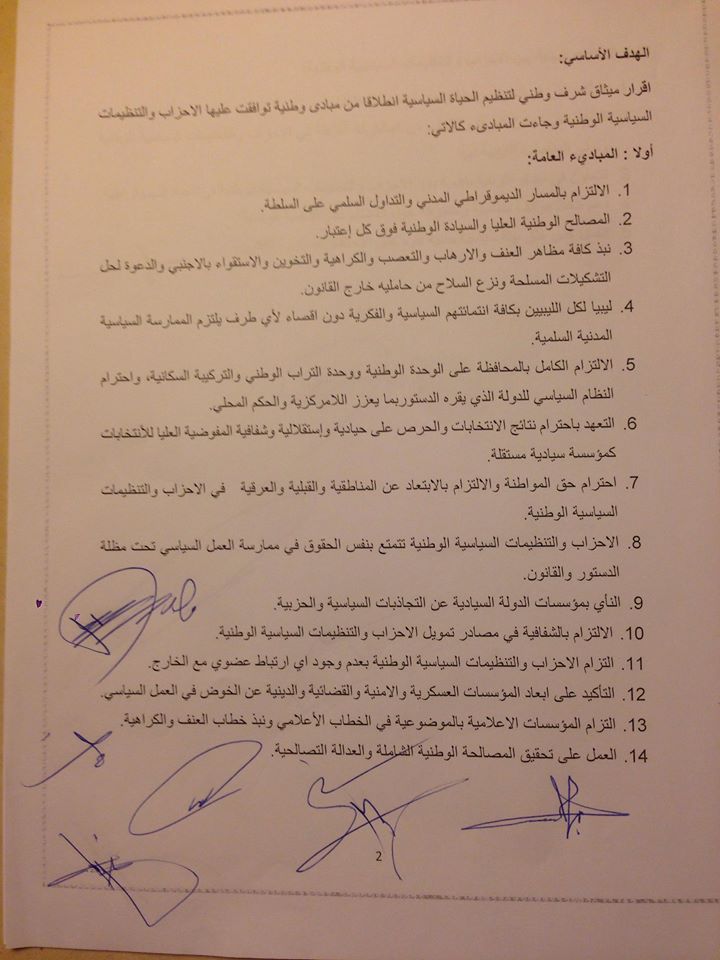 الهدف الأساسي:
اقرار ميثاق شرف وطني لتنظيم الحياة السياسية انطلاقا من مبادى وطنية توافقت عليها الاحزاب والتنظيمات
السياسية الوطنية وجاءت المبادىء كالاتي:
أولا : المباديء العامة:
1. الالتزام بالمسار الديموقراطي المدني والتداول السلمي على السلطة.
2. المصالح الوطنية العليا والسيادة الوطنية فوق كل إعتبار.
3. نبذ كافة مظاهر العنف والارهاب والتعصب والكراهية والتخوين والاستقواء بالاجنبي والدعوة لحل
التشكيلات المسلحة ونزع السلاح من حامليه خارج القانون.
4. ليبيا لكل الليبيين بكافة انتمائتهم السياسية والفكرية دون اقصاء لأي طرف يلتزم الممارسة السياسية
المدنية السلمية.
5. الالتزام الكامل بالمحافظة على الوحدة الوطنية ووحدة التراب الوطني والتركيبة السكانية، واحترام
النظام السياسي للدولة الذي يقره الدستوربما يعزز اللامركزية والحكم المحلي.
6. التعهد باحترام نتائج الانتخابات والحرص على حيادية وإستقلالية وشفافية المفوضية العليا للأنتخابات
كمؤسسة سيادية مستقلة.
7. احترام حق المواطنة والالتزام بالابتعاد عن المناطقية والقبلية والعرقية في الاحزاب والتنظيمات
السياسية الوطنية.
8. الاحزاب والتنظيمات السياسية الوطنية تتمتع بنفس الحقوق في ممارسة العمل السياسي تحت مظلة
الدستور والقانون.
9. النأي بمؤسسات الدولة السيادية عن التجاذبات السياسية والحزبية.
10. الالتزام بالشفافية في مصادر تمويل الاحزاب والتنظيمات السياسية الوطنية.
11. التزام الاحزاب والتنظيمات السياسية الوطنية بعدم وجود اي ارتباط عضوي مع الخارج.
12. التأكيد على ابعاد المؤسسات العسكرية والامنية والقضائية والدينية عن الخوض في العمل السياسي.
13. التزام المؤسسات الاعلامية بالموضوعية في الخطاب الأعلامي ونبذ خطاب العنف والكراهية.
14. العمل على تحقيق المصالحة الوطنية الشاملة والعدالة التصالحية.
2